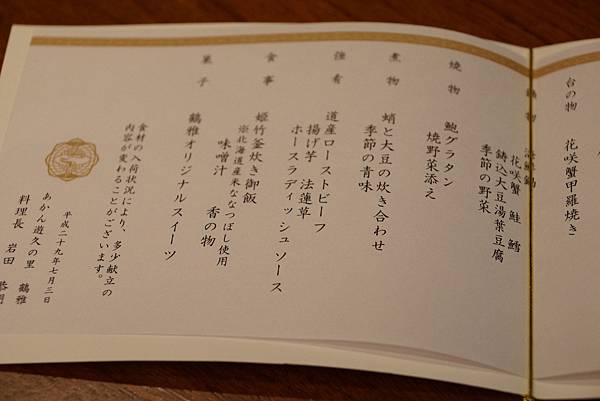 台の物
花咲蟹甲羅焼き
鍋物
海鮮鍋
花咲蟹 鮭 鱈
鋳込大豆湯葉豆腐
季節の野菜
焼物
鮑グラタン
焼野菜添え
煮物
蛸と大豆の炊き合わせ
季節の青味
強肴
道産ローストビーフ
揚げ芋 法蓮草
ホースラディッシュソース
食事
姫竹釜炊き御飯
※北海道産米ななつぼし使用
味噌汁 香の物
菓子
鶴雅オリジナルスイーツ
食材の入荷状況により、多少献立の
内容が変わることがございます。
平成二十九年七月三日
あかん遊久の里 鶴雅
料理長 岩田